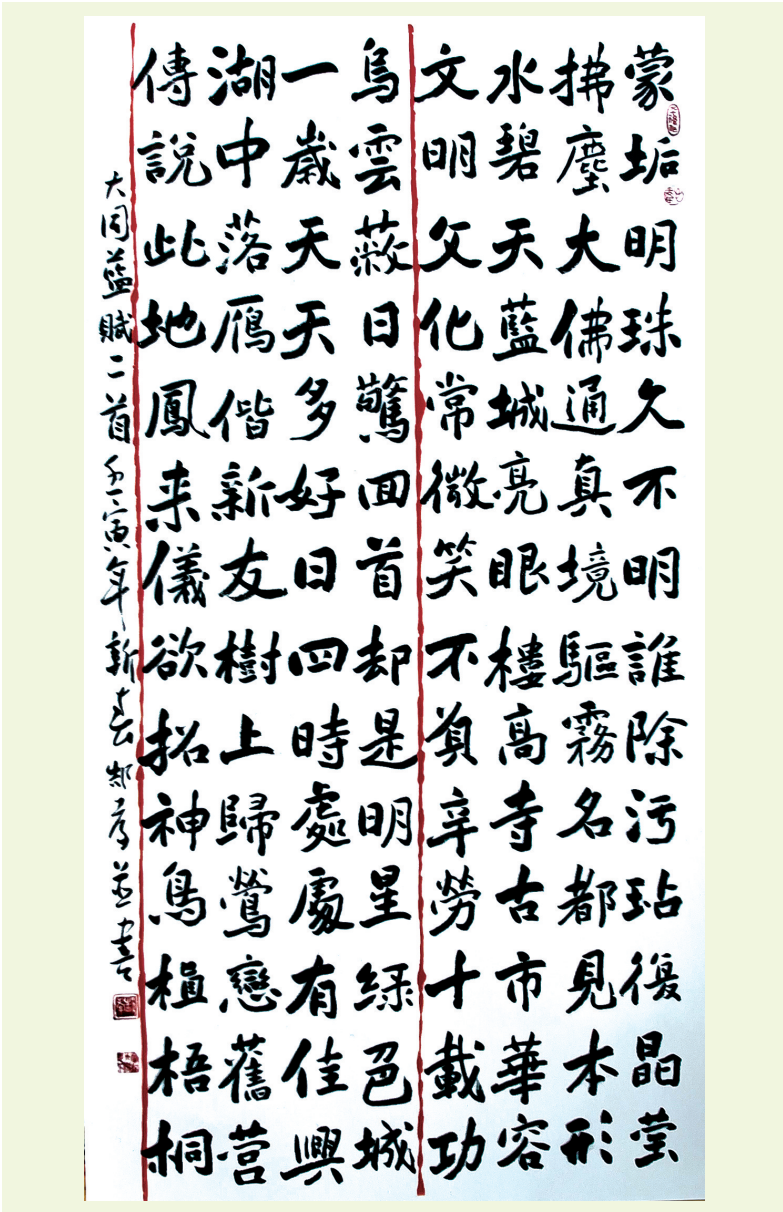 蒙垢明珠久不明誰除污玷復晶莹
拂塵大佛通真境驅霧名都見本形
水碧天藍城亮眼樓高寺古市華容
文明文化常微笑不負辛勞十載功
烏雲蔽日驚回首却是明星綠色城
一歲天天多好日四時處處有佳興
湖中落雁偕新友樹上歸鶯戀舊营
傳說此地鳳来儀欲招神鳥植梧桐
大同藍賦二首壬寅年新春並書